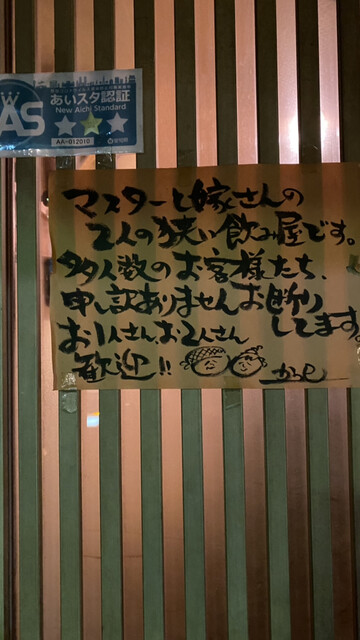 あいスタ認証
New Aichi Standard
AS
AA-012010
愛知県
マスターと嫁さんの
2人の狭い飲み屋です。
多人数のお客様たち、
申し訳ありませんお断り
してます。
お1人さん、お2人さん
歓迎!!